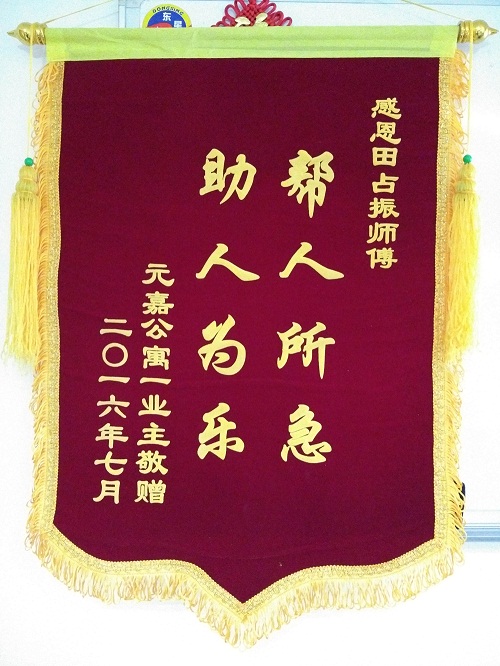 感恩田占振师傅
帮人所急
助人为乐
元嘉公寓一业主敬赠
二〇一六年七月